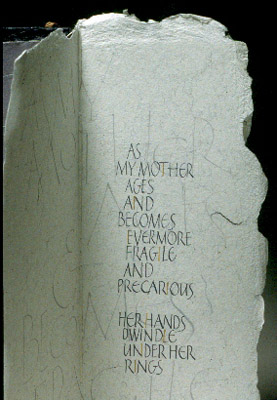 AS
MY MOTHER
AGES
AND
BECOMES
EVERMORE
FRAGILE
AND
PRECARIOUS,
HER HANDS
DWINDLE
UNDER HER
RINGS